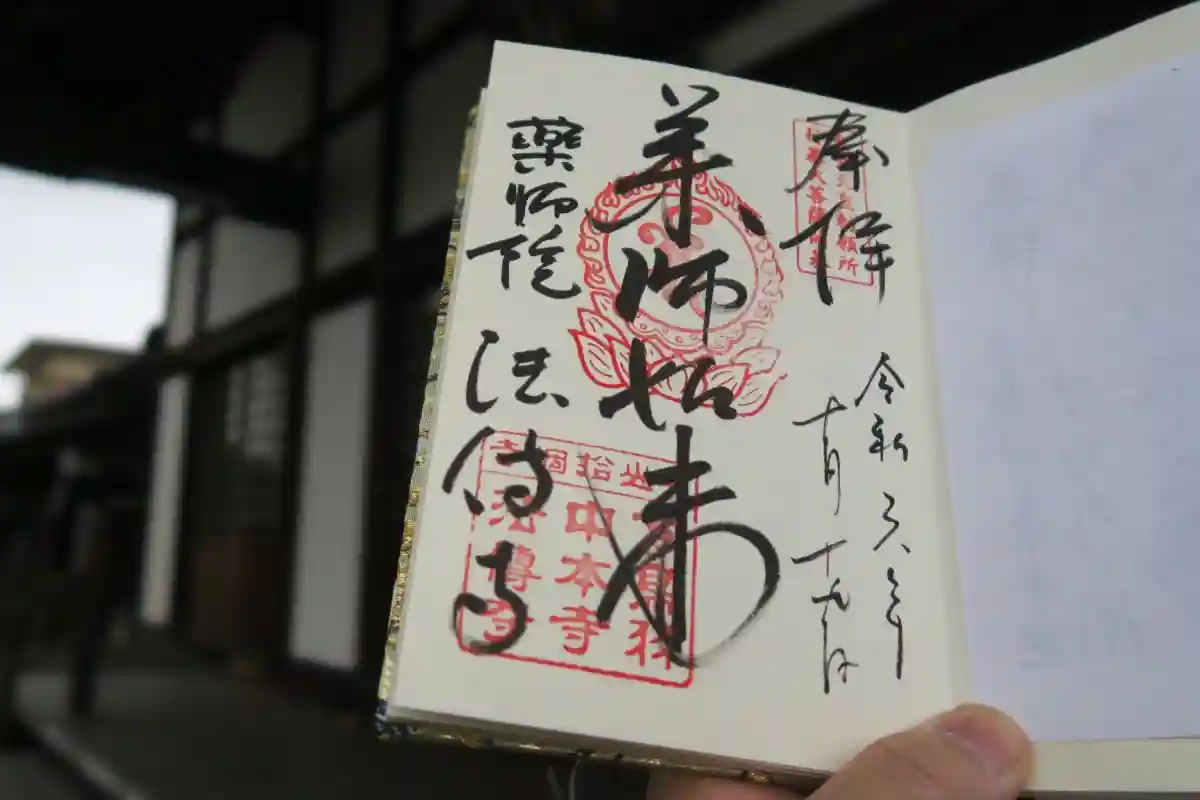 奉拝
令和六年
十月十九日
薬師如来
薬師院 法傳寺
中本寺